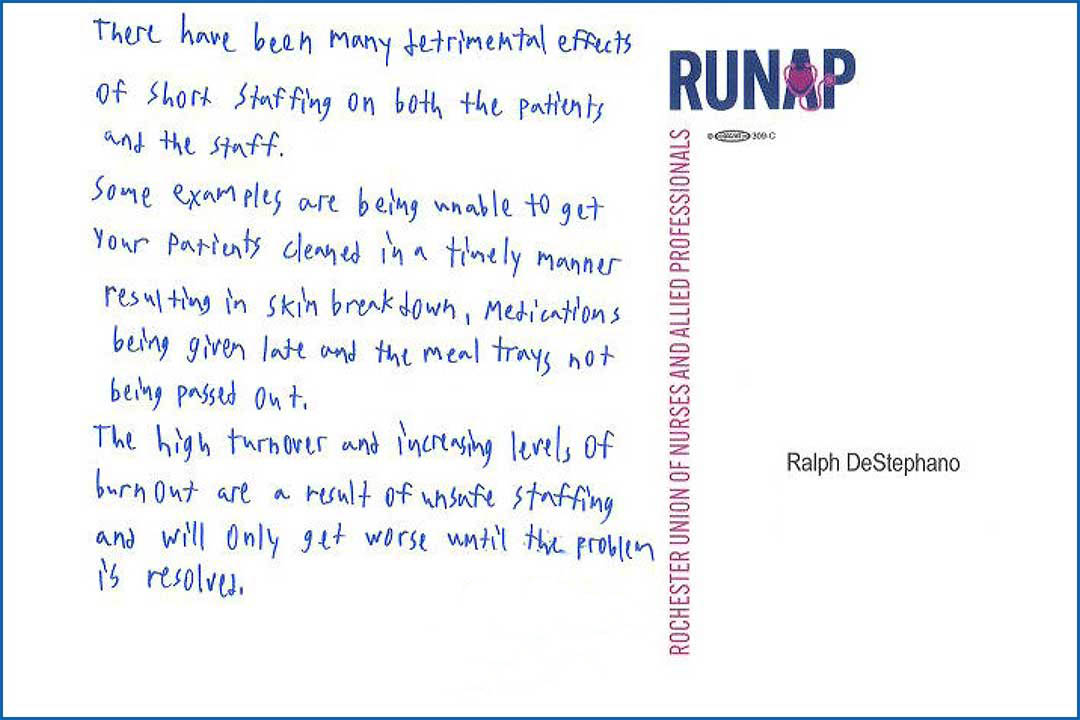 There have been many detrimental effects
of short staffing on both the patients
and the staff.
Some examples are being unable to get
your patients cleaned in a timely manner
resulting in skin breakdown, medications
being given late and the meal trays not
being passed out.
The high turnover and increasing levels of
burnout are a result of unsafe staffing
and will only get worse until the problem
is resolved.
RUNAP
309-C
ROCHESTER UNION OF NURSES AND ALLIED PROFESSIONALS
Ralph DeStephano